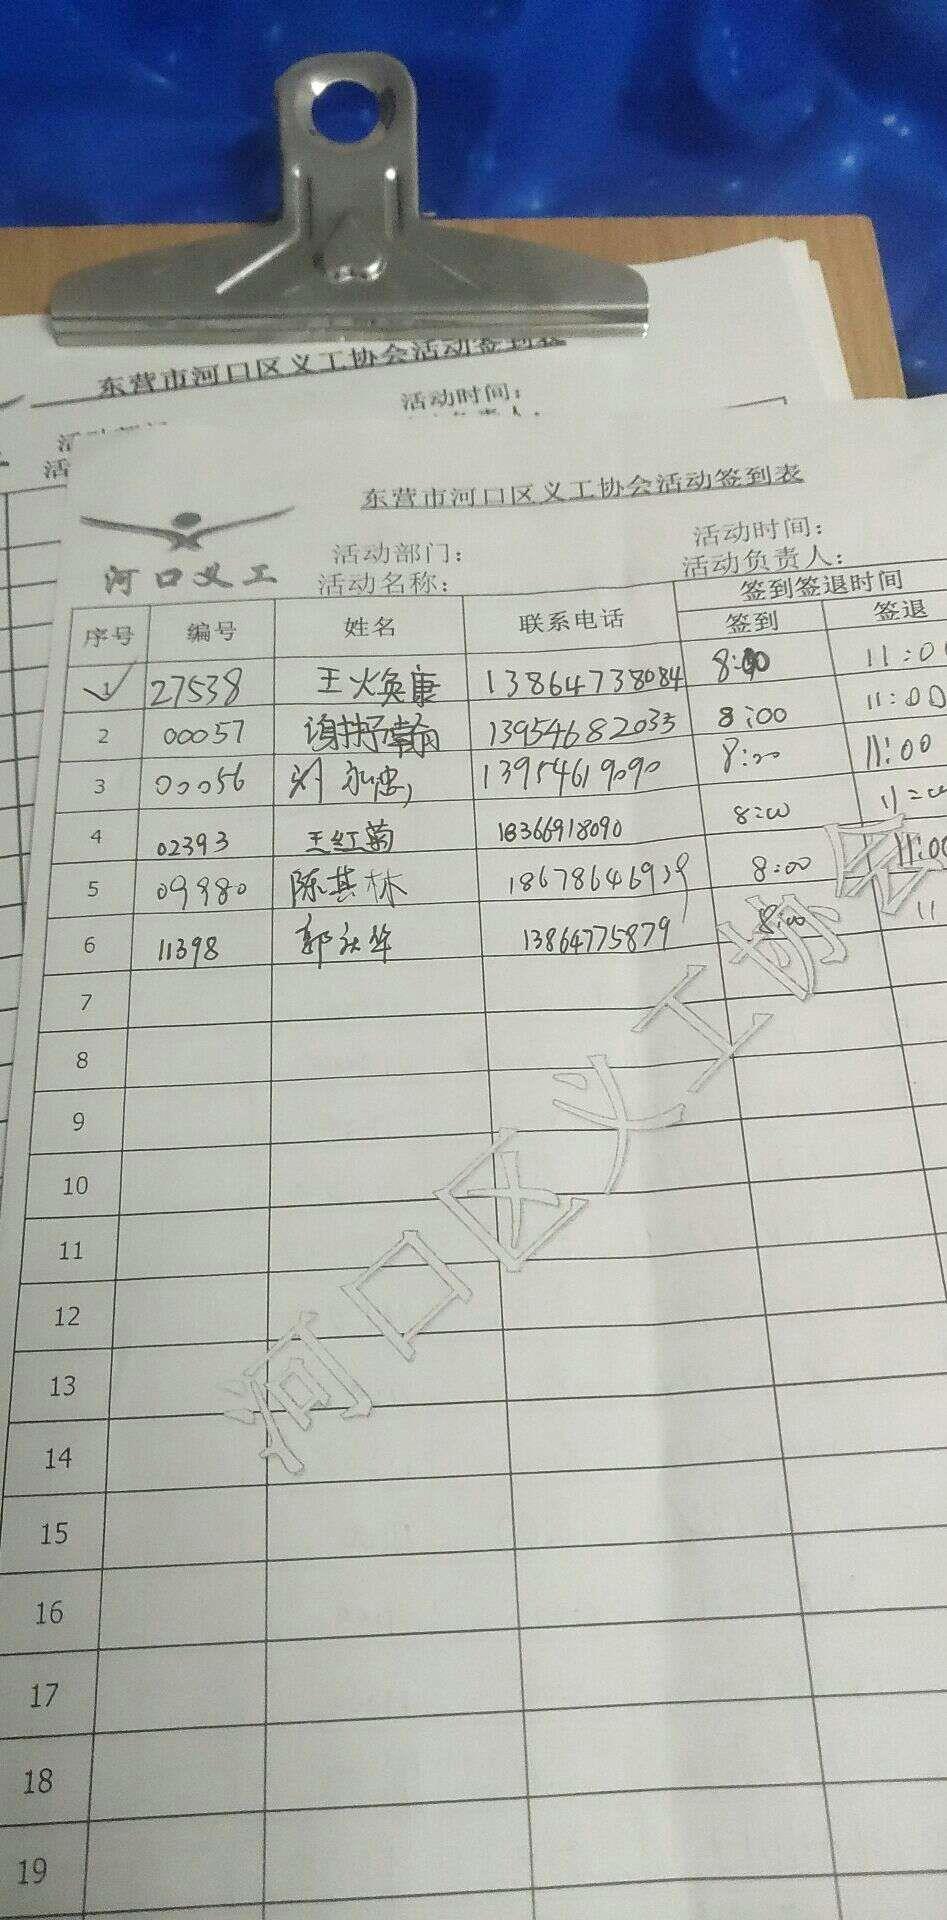 东营市河口区义工协会活动签到表
活动时间：
东营市河口区义工协会活动签到表
河口义工
活动部门： 活动时间：
活动名称： 活动负责人：
序号 编号 姓名 联系电话 签到签退时间
签到 签退
1 27538 王焕康 13864738084 8:00 11:00
2 00057 13954682033 8:00 11:00
3 00056 13954619090 8:00 11:00
4 02393 王红菊 18366918090 8:00 11:00
5 09980 陈其林 8:00 11:00
6 11398 13864775879 8:00 11
7
8
9
10
11
12
13
14
15
16
17
18
19
河口区义工协